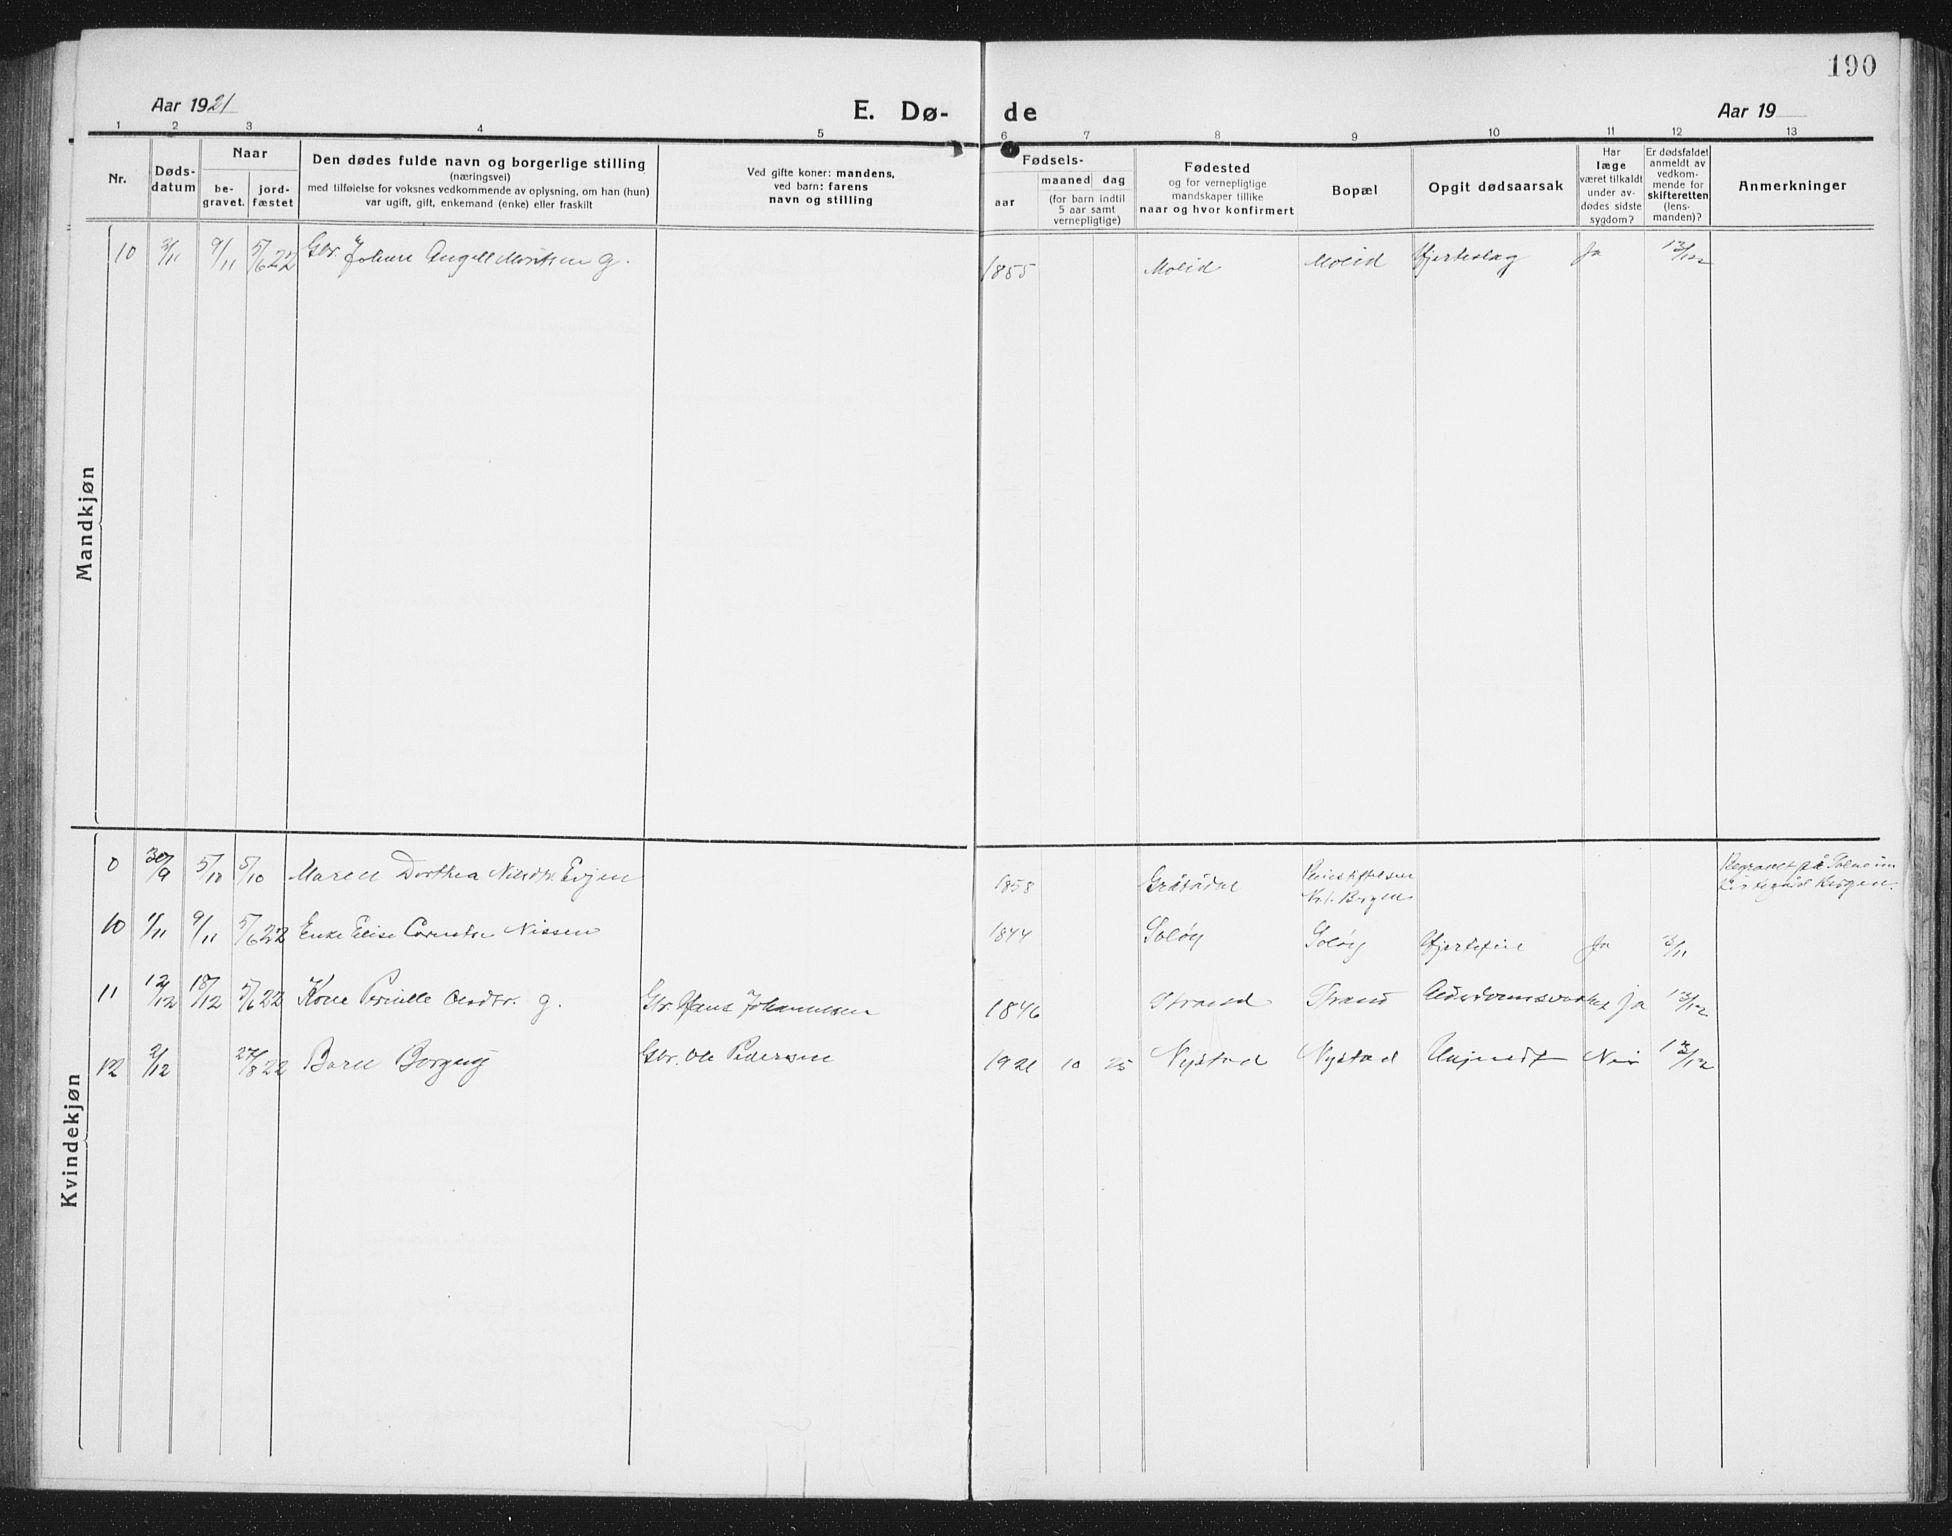 190
Aar 1921
E. Dø-
de
Aar 19
1 2 3 4 5 6 7 8 9 10 11 12 13
Nr.
Døds-
datum
Naar
be-
gravet.
jord-
fæstet
Den dødes fulde navn og borgerlige stilling
(næringsvei)
med tilføielse for voksnes vedkommende av oplysning, om han (hun)
var ugift, gift, enkemand (enke) eller fraskilt
Ved gifte koner: mandens,
ved barn: farens
navn og stilling
Fødsels-
aar
maaned dag
(for barn indtil
5 aar samt
vernepligtige)
Fødested
og for vernepligtige
mandskaper tillike
naar og hvor konfirmert
Bopæl
Opgit dødsaarsak
Har
læge
været tilkaldt
under av-
dødes sidste
sygdom?
Er dødsfaldet
anmeldt av
vedkom-
mende for
skifteretten
(lens-
manden)?
Anmerkninger
Mandkjøn
10 3/11 9/11 5/6 22 Gbr. Johan Angell g. 1855 Molid Molid Hjerteslag Ja 13/12
Kvindekjøn
30/9 5/10 5/10 Maren Dorthea Evjen 1858 Bergen
10 1/11 9/11 5/6 22 Enke Elise Nissen 1844 Soløy Soløy Ja 3/11
11 12/12 18/12 5/6 22 Kone Pernille g. Gbr. Hans Johannessen 1846 Strand Strand Ja 13/12
12 2/12 27/8 22 Barn Borgny Gbr. Ole Pedersen 1921 10 25 Nystad Nystad Ukjendt Nei 13/12